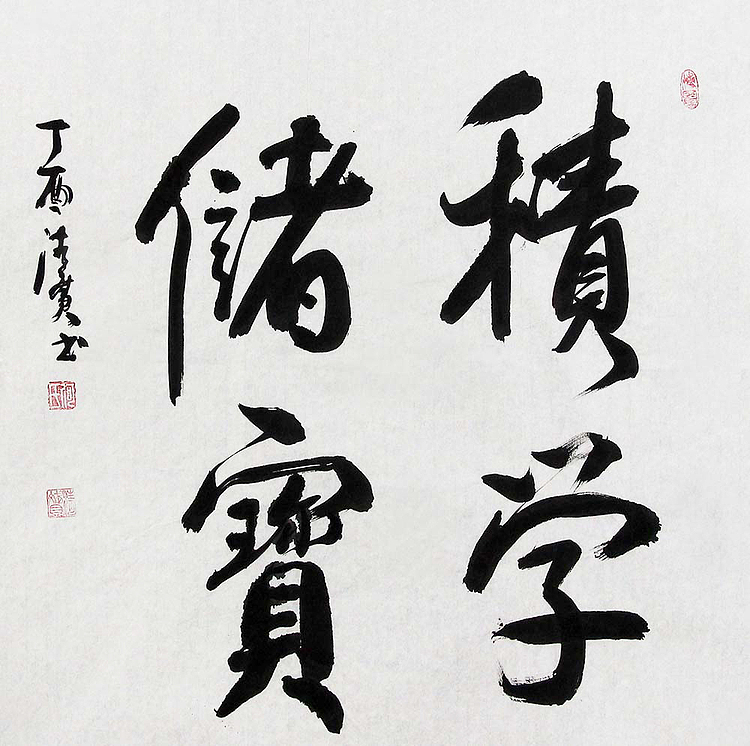 積学
儲寶
丁酉清賓书